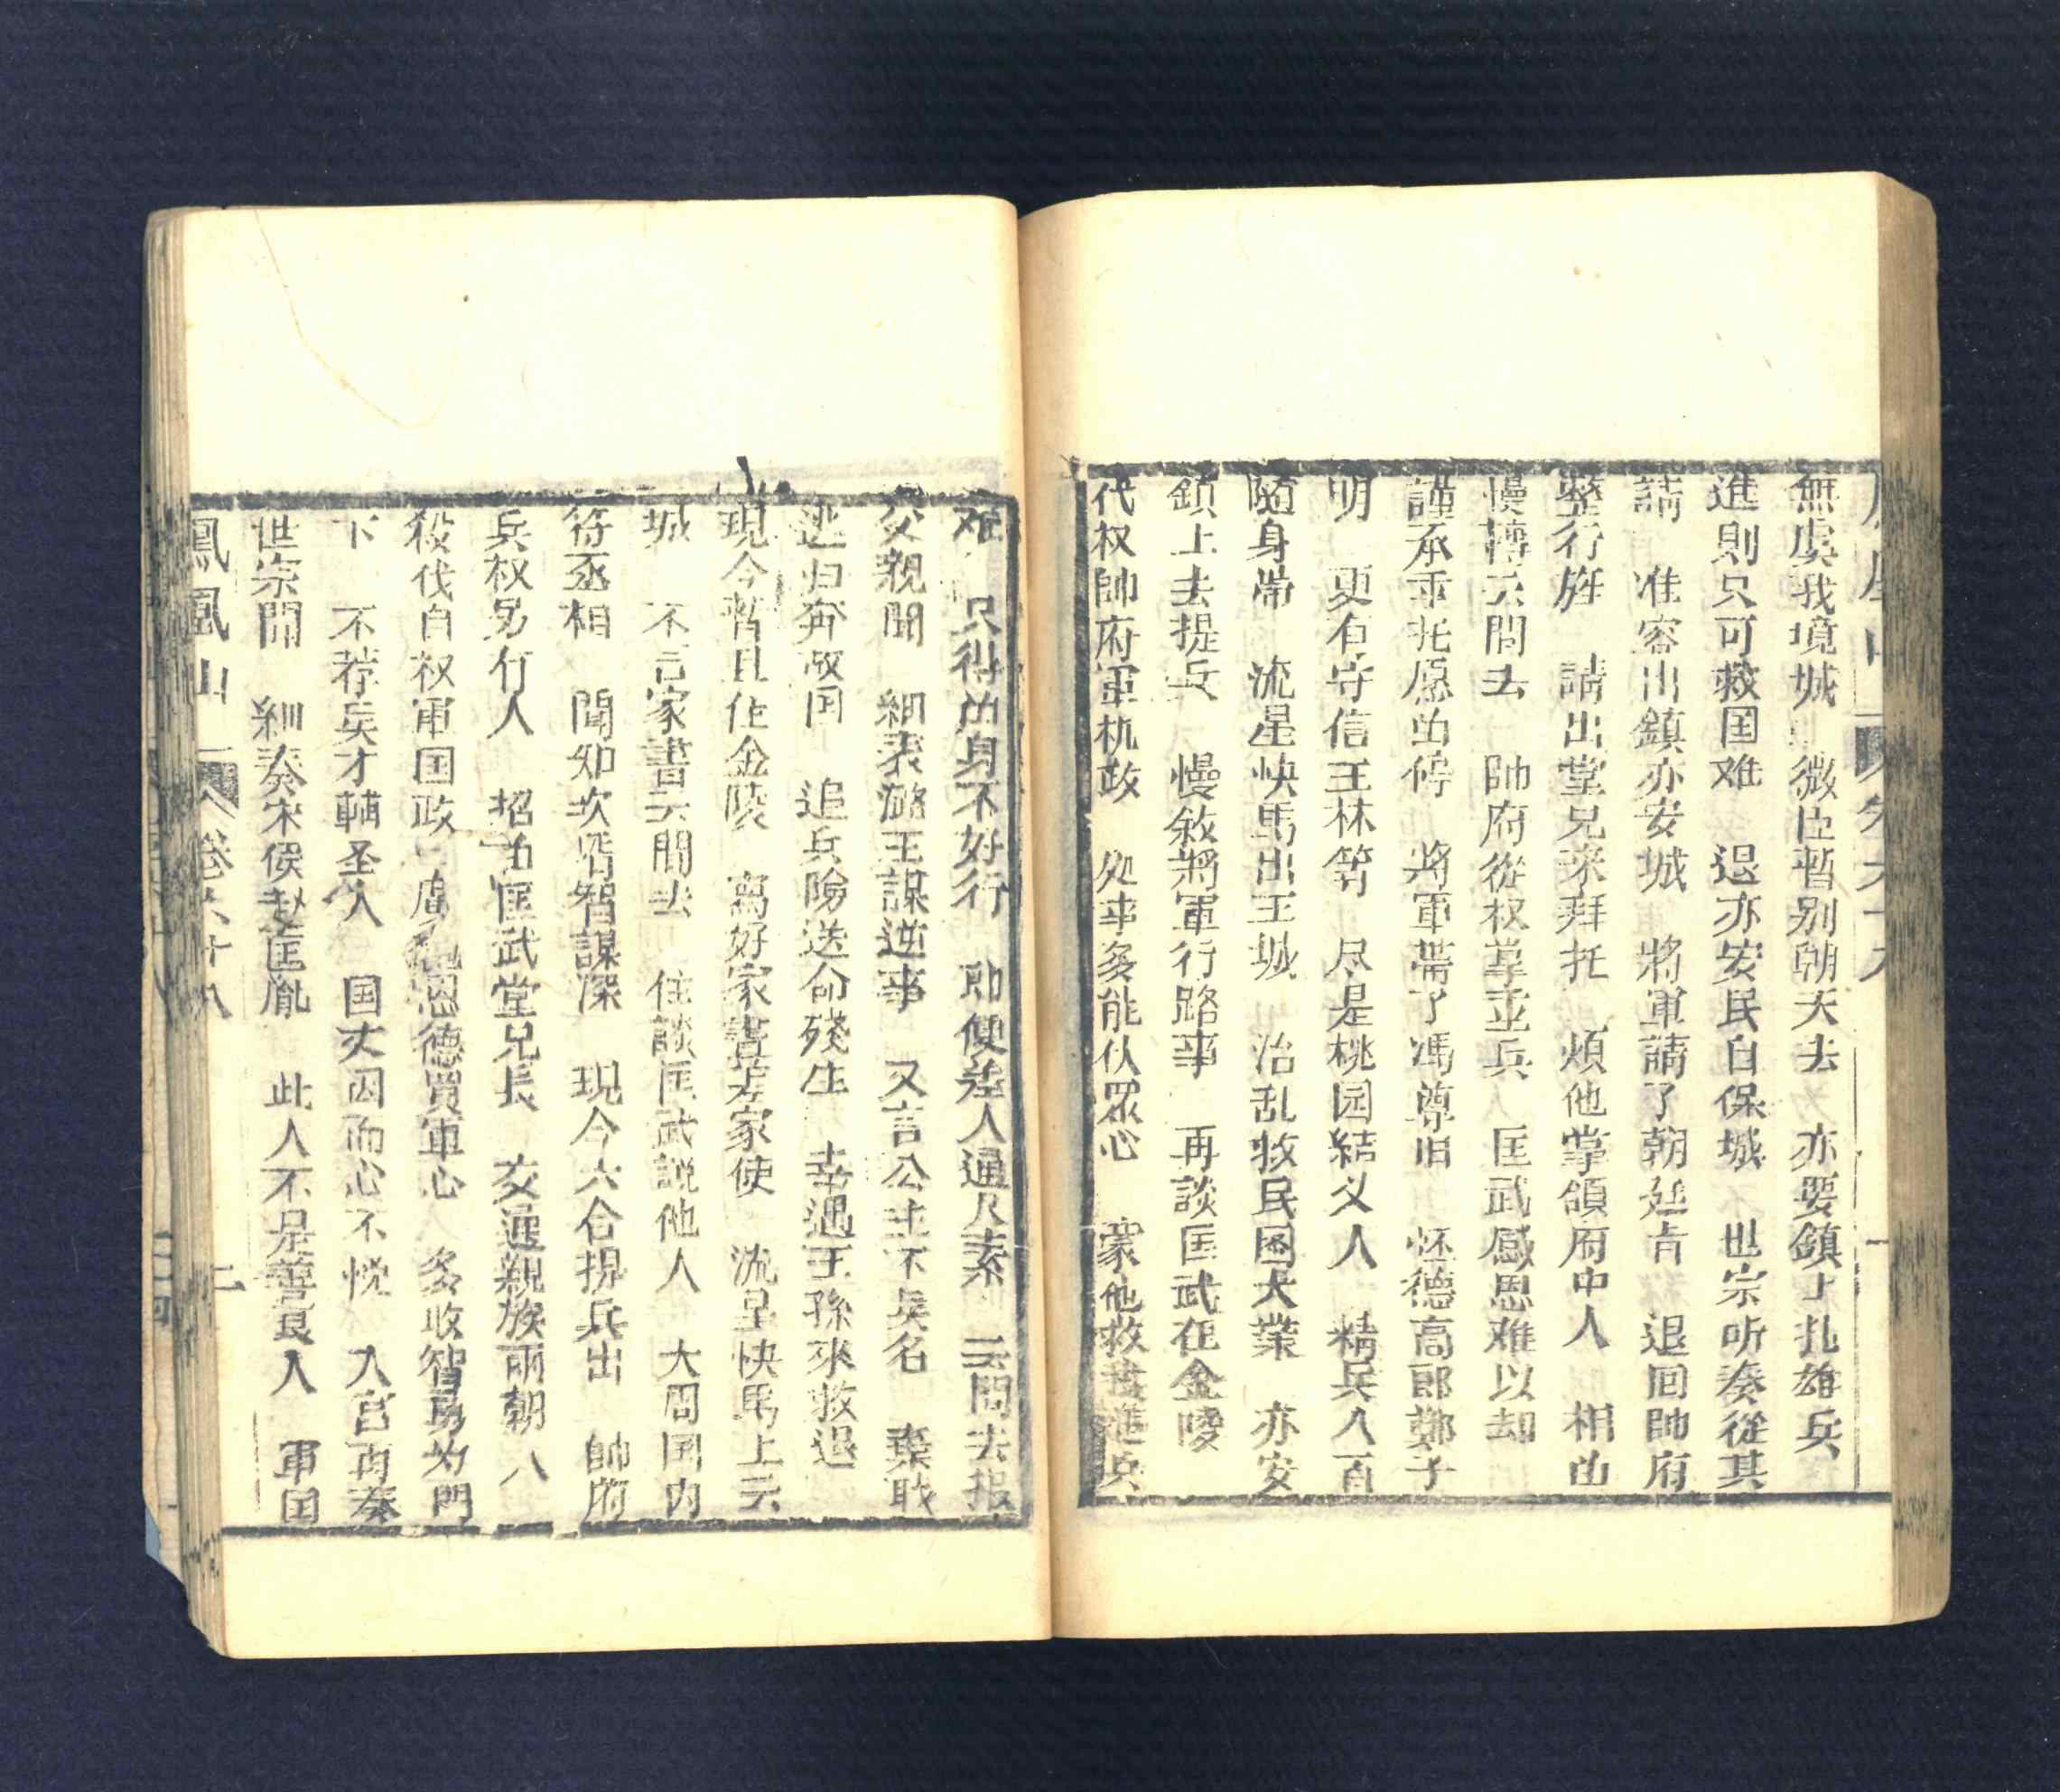 無虞我境城 微臣暫别朝天去 亦要鎮上扎雄兵
進則只可救国难 退亦安民自保城 世宗听奏從其
請 准容出鎮亦安城 將軍請了朝廷旨 退回帥府
整行旌 請出堂兄來拜托 煩他掌領府中人 相由
慢轉云間去 帥府從权掌並兵 匡武感恩难以却
謹承重托愿由停 將軍帶了馮尊旧 怀德高郎鄭子
明 更有守信王林等 尽是桃园結义人 精兵八百
随身帶 流星快馬出王城 治乱救民图大業 亦安
鎮上去提兵 慢敘將軍行路事 再談匡武在金陵
代权帥府軍机政 处事多能伏眾心 蒙他救 進兵
难 只得由身不好行 即便差人通尺素 云間去报
父親聞 細表潞王謀逆事 又言公主不良名 棄戢
逃归奔故国 追兵險送命殘生 幸遇王孫來救退
現今暫且住金陵 寫好家書差家使 流星快馬上云
城 不言家書云間去 住談匡武説他人 大周国内
符丞相 聞知次壻智謀深 現今六合提兵出 帥府
兵权另付人 招由匡武堂兄長 交通親族兩朝八
殺伐自权軍国政 恩德買軍心 多收智勇为門
下 不荐矣才輔圣人 国丈因而心不悦 入宫再奏
世宗聞 細奏宋侯赵匡胤 此人不是善良人 軍国
鳳凰山 卷六十八 二